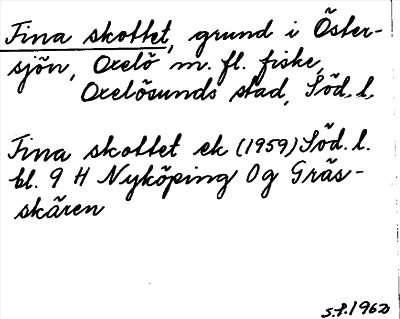 Fina skottet, grund i Öster-
sjön, Oxelö m. fl. fiske,
Oxelösunds stad, Söd. l.
Fina skottet ek (1959) Söd. l.
bl. 9 H Nyköping Og Gräs-
skären
S.P. 1962